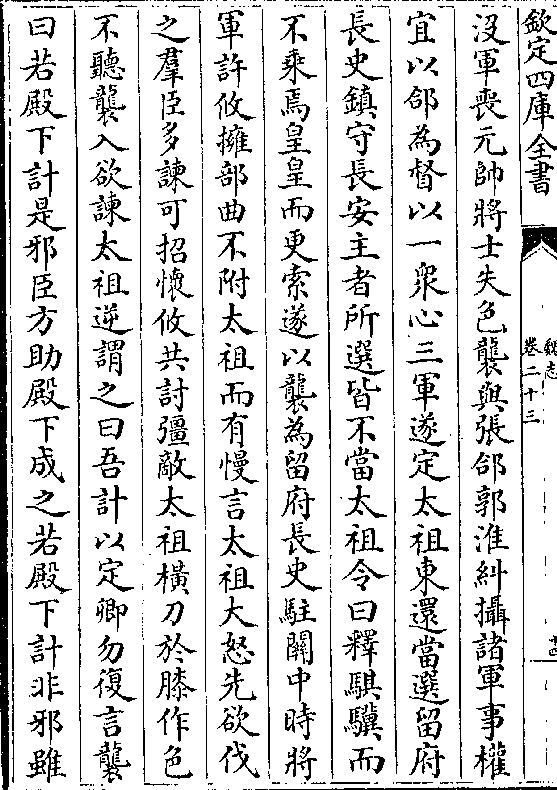 欽定四庫全書
魏志
卷二十三
十四
沒軍喪元帥將士失色襲與張郃郭淮糾攝諸軍事權
宜以郃為督以一衆心三軍遂定太祖東還當選留府
長史鎮守長安主者所選皆不當太祖令曰釋騏驥而
不乘焉皇皇而更索遂以襲為留府長史駐關中時將
軍許攸擁部曲不附太祖而有慢言太祖大怒先欲伐
之羣臣多諫可招懷攸共討彊敵太祖橫刀於膝作色
不聽襲入欲諫太祖逆謂之曰吾計以定卿勿復言襲
曰若殿下計是邪臣方助殿下成之若殿下計非邪雖